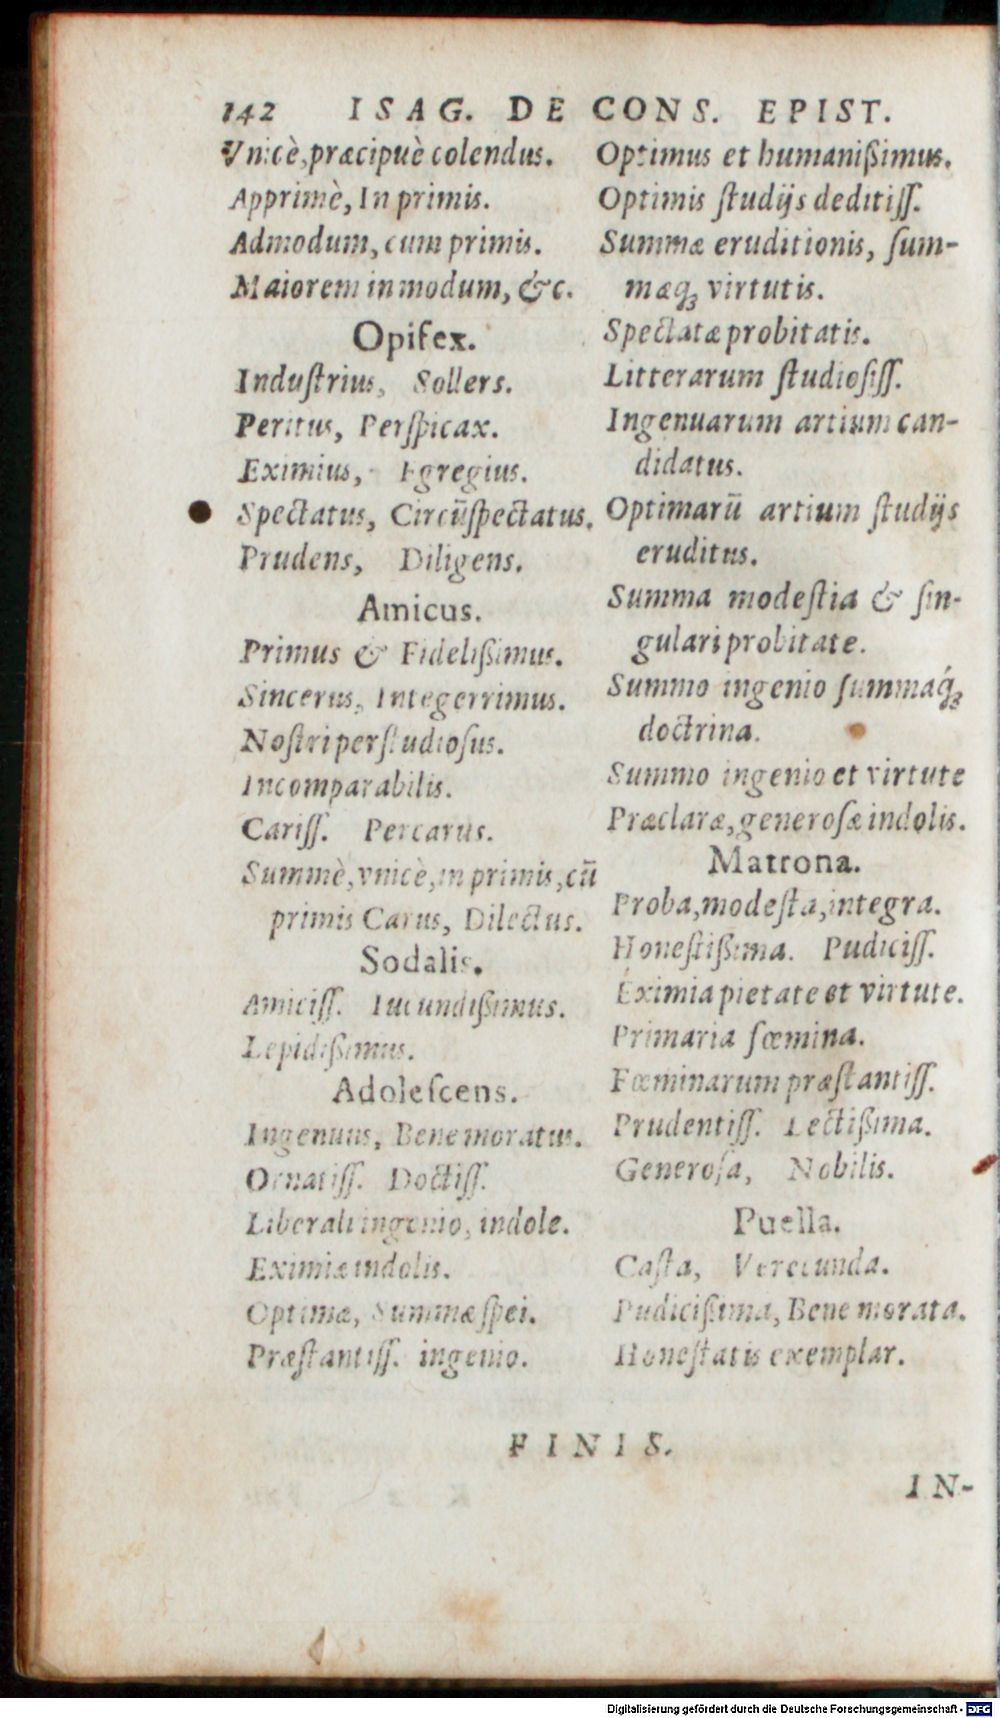 142 ISAG. DE CONS. EPIST.
Vnicè, præcipuè colendus.
Apprimè, In primis.
Admodum, cum primis.
Maiorem in modum, &c.
Opifex.
Induſtrius, Sollers.
Peritus, Perſpicax.
Eximius, Egregius.
Spectatus, Circūſpectatus.
Prudens, Diligens.
Amicus.
Primus & Fidelißimus.
Sincerus, Integerrimus.
Noſtri perſtudioſus.
Incomparabilis.
Cariſſ. Percarus.
Summè, vnicè, in primis, cū
primis Carus, Dilectus.
Sodalis.
Amiciſſ. Iucundißimus.
Lepidißimus.
Adoleſcens.
Ingenuus, Bene moratus.
Ornatiſſ. Doctiſſ.
Liberali ingenio, indole.
Eximiæ indolis.
Optimæ, Summæ ſpei.
Præſtantiſſ. ingenio.
Optimus et humanißimus.
Optimis ſtudijs deditiſſ.
Summæ eruditionis, ſum-
mæq́; virtutis.
Spectatæ probitatis.
Litterarum ſtudioſiſſ.
Ingenuarum artium can-
didatus.
Optimarū artium ſtudijs
eruditus.
Summa modeſtia & ſin-
gulari probitate.
Summo ingenio ſummaq́;
doctrina.
Summo ingenio et virtute
Præclaræ, generoſæ indolis.
Matrona.
Proba, modeſta, integra.
Honeſtißima. Pudiciſſ.
Eximia pietate et virtute.
Primaria fœmina.
Fœminarum præſtantiſſ.
Prudentiſſ. Lectißima.
Generoſa, Nobilis.
Puella.
Caſta, Verecunda.
Pudicißima, Bene morata.
Honeſtatis exemplar.
FINIS.
IN-
Digitalisierung gefördert durch die Deutsche Forschungsgemeinschaft - DFG